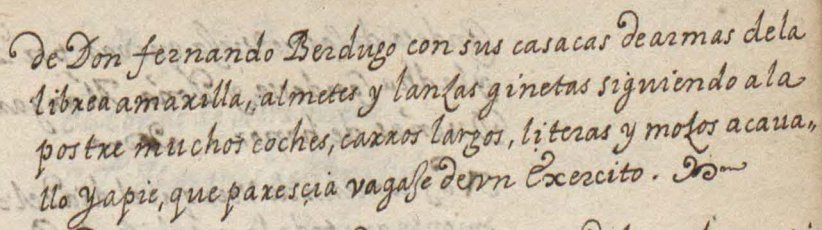 de Don fernando Berdugo con sus casacas de armas dela
librea amarilla, almetes y lanzas ginetas siguiendo ala
postre muchos coches, carros largos, literas y mozos acaua„
llo y apie, que paresçia vagase de vn Exercito.